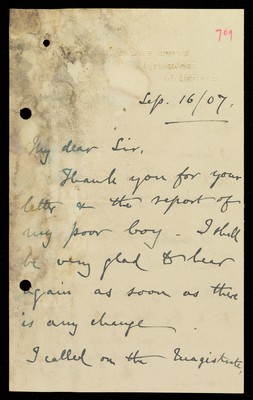 709
Sep. 16/07.
My dear Sir,
Thank you for your
letter & the report of
my poor boy - I shall
be very glad to hear
again as soon as there
is any change.
I called on the Magistrate,